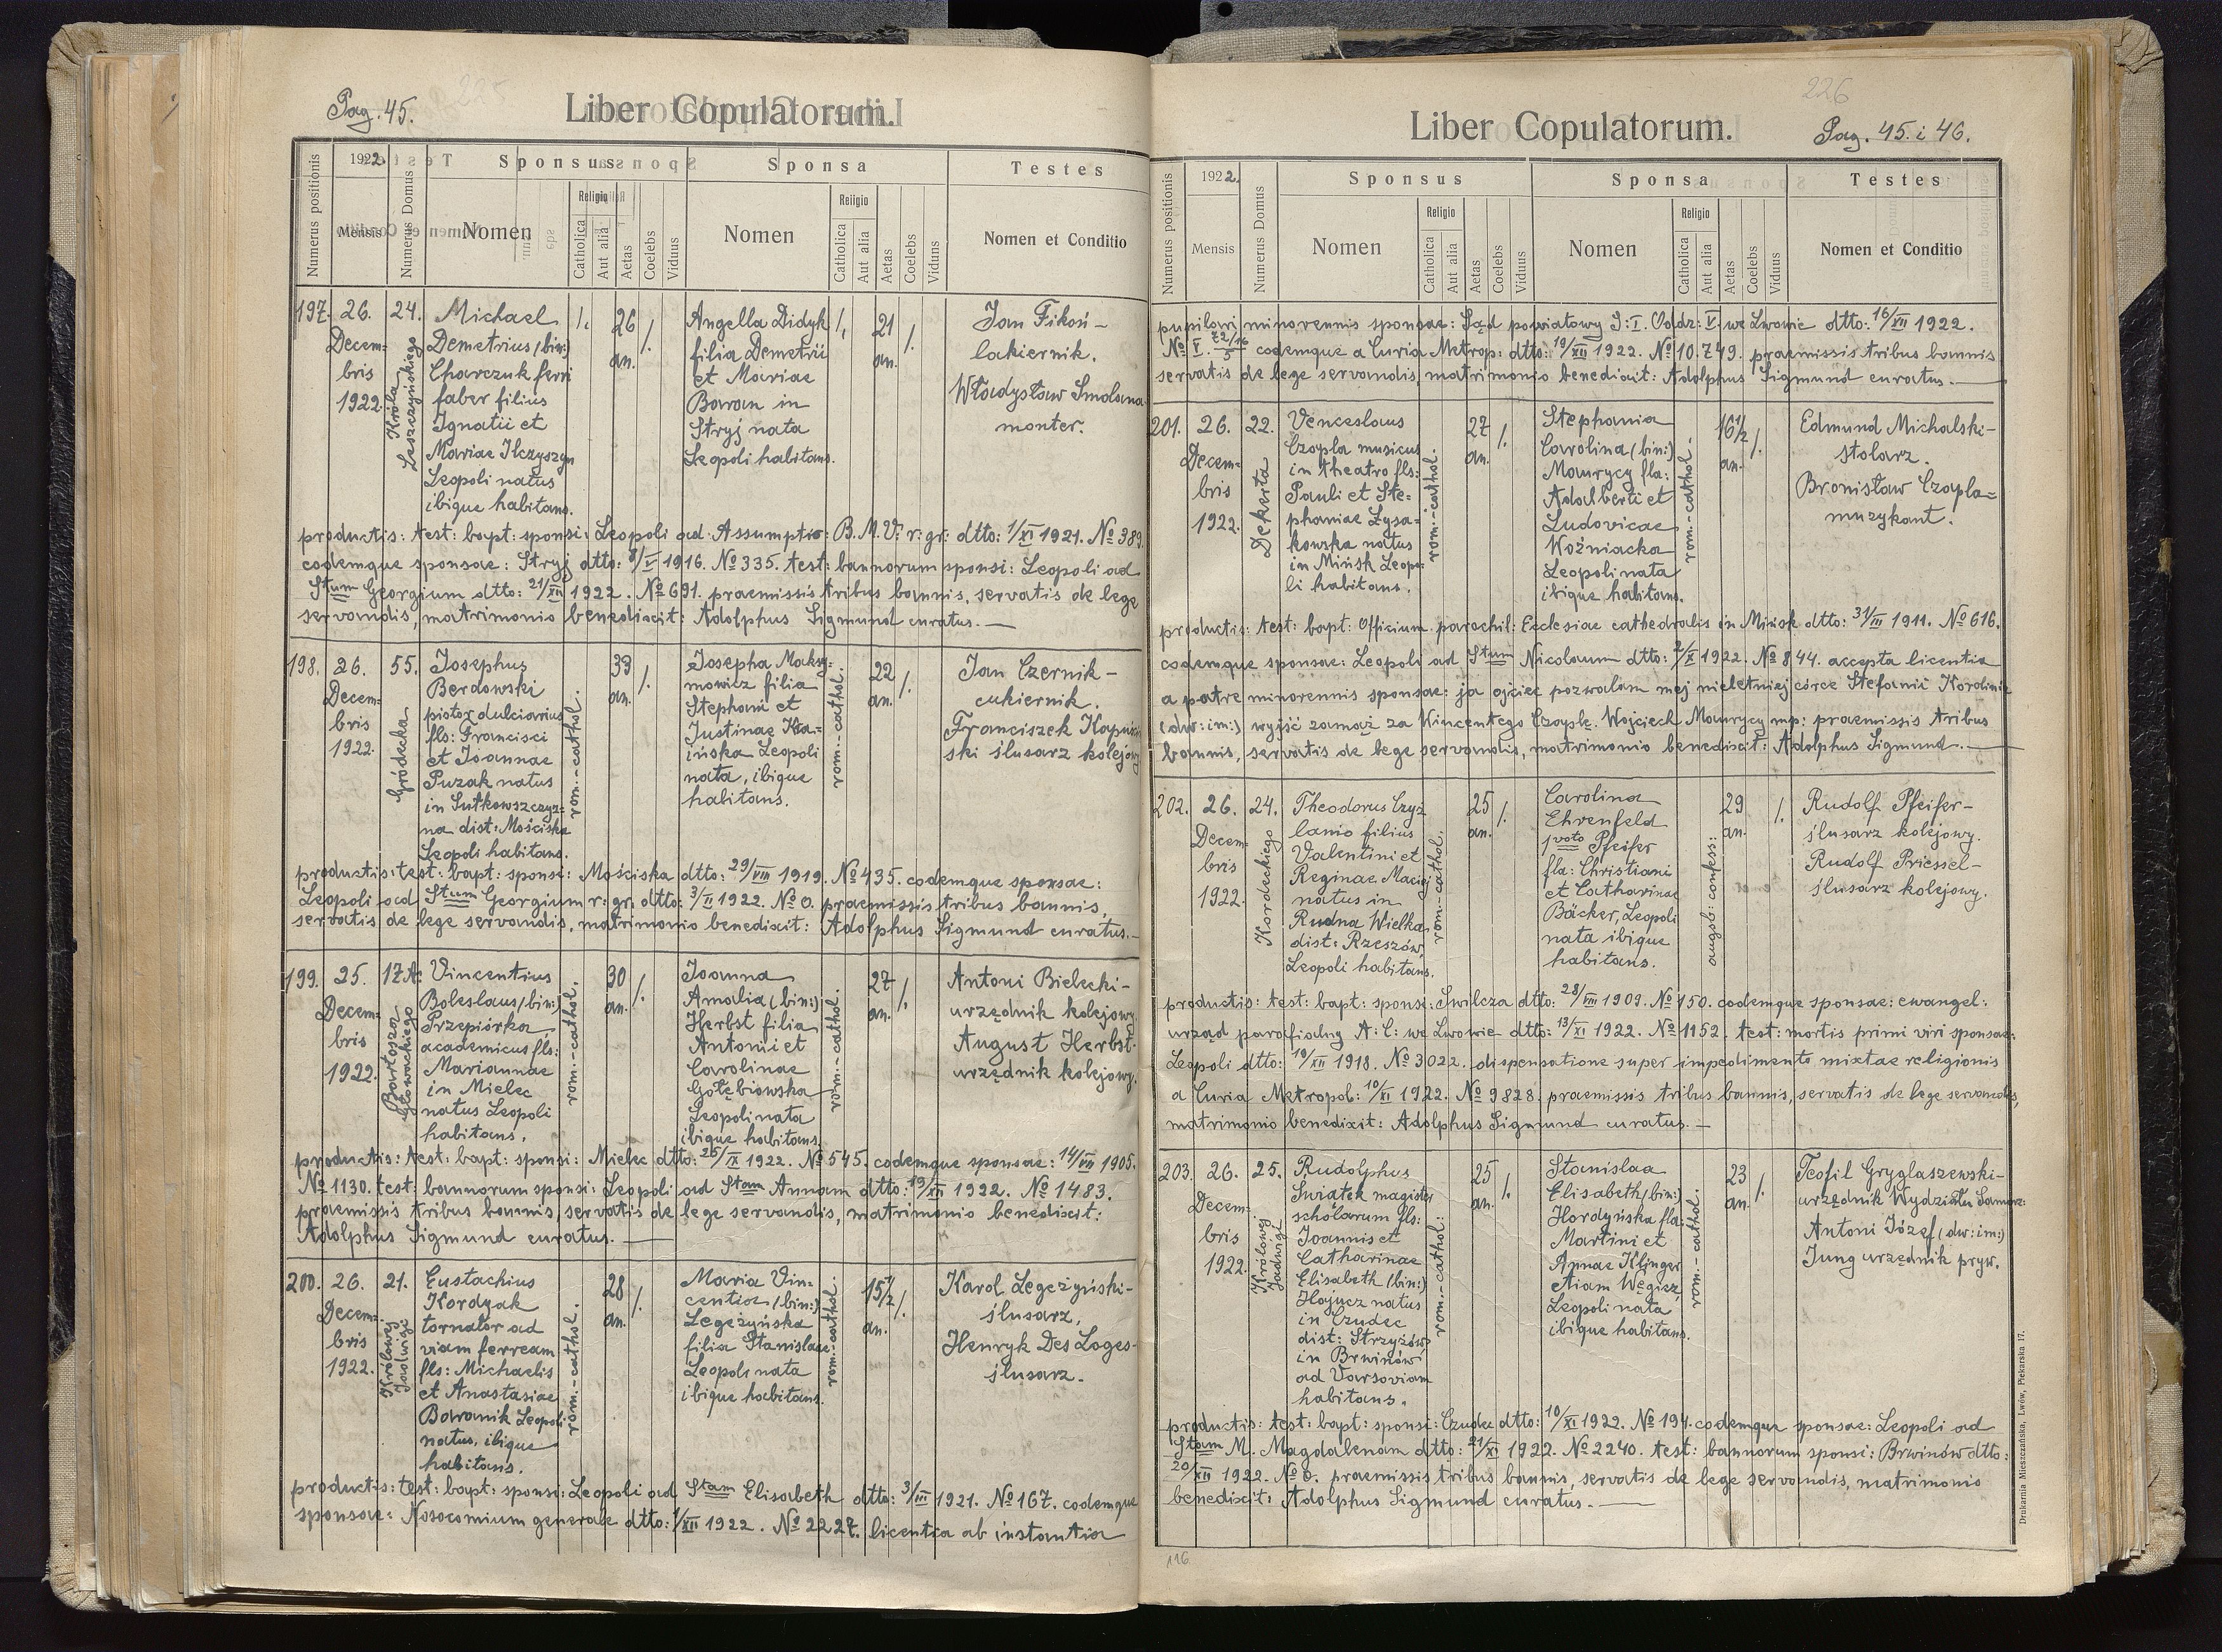 Pag. 45.
Liber Copulatorum.
Numerus positionis
1922
Mensis
Numerus Domus
Sponsus
Nomen
Religio
Catholica
Aut alia
Aetas
Coelebs
Viduus
Sponsa
Nomen
Religio
Catholica
Aut alia
Aetas
Coelebs
Viduus
Testes
Nomen et Conditio
197. 26. Decem-
bris
1922.
24.
Króla Leszczyńskiego
Michael
Demetrius (bin:)
Charczuk ferri
faber filius
Ignatii et
Mariae Ilczyszyn
Leopoli natus
ibique habitans.
26
an.
Angella Didyk
filia Demetrii
et Mariae
Baran in
Stryj nata
Leopoli habitans.
21
an.
Jan Fikoń -
lakiernik.
Władysław Smolana
monter.
productis: test: bapt: sponsi: Leopoli ad Assumptio: B. M. V: r: gr: dtto: 1/XI 1921. No 389.
eodemque sponsae: Stryj dtto: 8/V 1916. No 335. test: bannorum sponsi: Leopoli ad
Stum Georgium dtto: 21/XII 1922. No 691. praemissis tribus bannis, servatis de lege
servandis, matrimonio benedixit: Adolphus Sigmund curatus. —
198. 26.
Decem-
bris
1922.
55.
Gródecka
Josephus
Berdowski
pistor dulciarius
fls: Francisci
et Joannae
Puzak natus
in Sutkowszczyz-
na dist: Mościska
Leopoli habitans.
rom.-cathol.
33
an.
Josepha Maksy-
mowicz filia
Stephani et
Justinae Ka-
ińska Leopoli
nata, ibique
habitans.
rom.-cathol.
22
an.
Jan Czernik -
cukiernik.
Franciszek Kapuściń
ski ślusarz kolejowy
productis: test: bapt: sponsi: Mościska dtto: 29/VIII 1919. No 435. eodemque sponsae:
Leopoli ad Stum Georgium r: gr: dtto: 3/II 1922. No 0. praemissis tribus bannis,
servatis de lege servandis, matrimonio benedixit: Adolphus Sigmund curatus. —
199. 25.
Decem-
bris
1922.
17A.
Bartosza Głowackiego
Vincentius
Boleslaus (bin:)
Przepiórka
academicus fls:
Mariannae
in Mielec
natus Leopoli
habitans.
rom.-cathol.
30
an.
Joanna
Amalia (bin:)
Herbst filia
Antonii et
Carolinae
Gołębiowska
Leopoli nata
ibique habitans.
rom.-cathol.
27
an.
Antoni Bielecki -
urzędnik kolejowy.
August Herbst -
urzędnik kolejowy.
productis: test: bapt: sponsi: Mielec dtto: 25/IX 1922. No 545. eodemque sponsae: 14/VII 1905.
No 1130. test: bannorum sponsi: Leopoli ad Stam Annam dtto: 19/XII 1922. No 1483.
praemissis tribus bannis, servatis de lege servandis, matrimonio benedixit:
Adolphus Sigmund curatus. —
200. 26.
Decem-
bris
1922.
21.
Królowej Jadwigi
Eustachius
Kordyak
tornator ad
viam ferream
fls: Michaelis
et Anastasiae
Baranik Leopoli
natus, ibique
habitans.
rom.-cathol.
28
an.
Maria Vin-
centia (bin:)
Legeżyńska
filia Stanislaae
Leopoli nata
ibique habitans.
rom.-cathol.
15 1/2
an.
Karol Legeżyński -
ślusarz.
Henryk Des Loges -
ślusarz.
productis: test: bapt: sponsi: Leopoli ad Stam Elisabeth dtto: 3/III 1921. No 167. eodemque
sponsae: Nosocomium generale dtto: 1/XII 1922. No 2227. licentia ab instantia
226
Liber Copulatorum.
Pag. 45. i 46.
Numerus positionis
1922.
Mensis
Numerus Domus
Sponsus
Nomen
Religio
Catholica
Aut alia
Aetas
Coelebs
Viduus
Sponsa
Nomen
Religio
Catholica
Aut alia
Aetas
Coelebs
Viduus
Testes
Nomen et Conditio
pupilari minorennis sponsae: Sąd powiatowy S: I. Oddz: V. we Lwowie dtto: 16/XII 1922.
No V. 72/16/5 eodemque a Curia Metrop: dtto: 19/XII 1922. No 10.749. praemissis tribus bannis
servatis de lege servandis, matrimonio benedixit: Adolphus Sigmund curatus. —
201. 26.
Decem-
bris
1922.
22.
Dekerta
Venceslaus
Czapla musicus
in theatro fls:
Pauli et Ste-
phaniae Łysa-
kowska natus
in Mińsk Leopo-
li habitans.
rom.-cathol.
27
an.
Stephania
Carolina (bin:)
Maurycy fla:
Adalberti et
Ludovicae
Woźniacka
Leopoli nata
ibique habitans.
rom.-cathol.
16 1/2
an.
Edmund Michalski -
stolarz.
Bronisław Czapla -
muzykant.
productis: test: bapt: Officium parochil: Ecclesiae cathedralis in Mińsk dtto: 31/III 1911. No 616.
eodemque sponsae: Leopoli ad Stum Nicolaum dtto: 2/X 1922. No 844. accepta licentia
a patre minorennis sponsae: ja ojciec pozwalam mej nieletniej córce Stefanii Karolinie
(dw: im:) wyjść zamąż za Wincentego Czaplę. Wojciech Maurycy mp: praemissis tribus
bannis, servatis de lege servandis, matrimonio benedixit: Adolphus Sigmund. —
202. 26.
Decem-
bris
1922.
24.
Kordeckiego
Theodorus Czyż
lanio filius
Valentini et
Reginae Maciej
natus in
Rudna Wielka
dist: Rzeszów,
Leopoli habitans.
rom.-cathol.
25
an.
Carolina
Ehrenfeld
1voto Pfeifer
fla: Christiani
et Catharinae
Bäcker, Leopoli
nata ibique
habitans.
augsb: confess:
29
an.
Rudolf Pfeifer -
ślusarz kolejowy.
Rudolf Priessel -
ślusarz kolejowy.
productis: test: bapt: sponsi: Świlcza dtto: 28/VIII 1909. No 150. eodemque sponsae: ewangel:
urząd parafialny A: C: we Lwowie dtto: 13/XI 1922. No 1152. test: mortis primi viri sponsae:
Leopoli dtto: 19/XII 1918. No 3022. dispensatione super impedimento mixtae religionis
a Curia Metropol: 10/XI 1922. No 9828. praemissis tribus bannis, servatis de lege servandis,
matrimonio benedixit: Adolphus Sigmund curatus. —
203. 26.
Decem-
bris
1922.
25.
Królowej Jadwigi
Rudolphus
Świątek magister
scholarum fls:
Joannis et
Catharinae
Elisabeth (bin:)
Hajucz natus
in Czudec
dist: Strzyżów
in Brwinów
ad Varsoviam
habitans.
rom.-cathol:
25
an.
Stanislaa
Elisabeth (bin:)
Hordyńska fla:
Martini et
Annae Klinger
etiam Węgierz
Leopoli nata
ibique habitans.
rom.-cathol.
23
an.
Teofil Gryglaszewski -
urzędnik Wydziału Samorz:
Antoni Józef (dw: im:)
Jung urzędnik pryw.
productis: test: bapt: sponsi: Czudec dtto: 10/XI 1922. No 194. eodemque sponsae: Leopoli ad
Stam M. Magdalenam dtto: 21/XI 1922. No 2240. test: bannorum sponsi: Brwinów dtto:
20/XII 1922. No 0. praemissis tribus bannis, servatis de lege servandis, matrimonio
benedixit: Adolphus Sigmund curatus. —
116
Drukarnia Mieszczańska, Lwów, Piekarska 17.